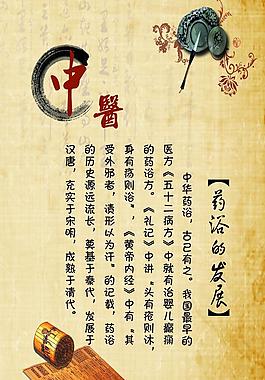 中醫
【药浴的发展】
中华药浴，古已有之。我国最早的
医方《五十二病方》中就有治婴儿癫痫
的药浴方。《礼记》中讲“头有疮则沐，
身有疡则浴”，《黄帝内经》中有“其
受外邪者，渍形以为汗”的记载，药浴
的历史源远流长，奠基于秦代，发展于
汉唐，充实于宋明，成熟于清代。